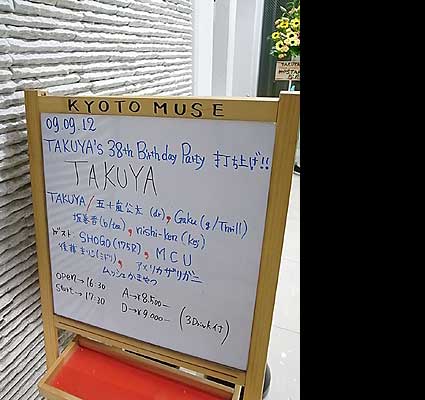 KYOTO MUSE
09.09.12
TAKUYA's 38th Birthday Party 打ち上げ!!
TAKUYA
TAKUYA/五十嵐公太(dr), Gaku(g/Thrill)
(b/tea), nishi-ken(key)
ゲスト SHOGO(175R), MCU
佐藤まりこ(ミドリ), アメリカザリガニ
ムッシュかきやつ
open→16:30 A→¥8.500-
Start→17:30 D→¥9.000- (3Drink付)
TAKUYA